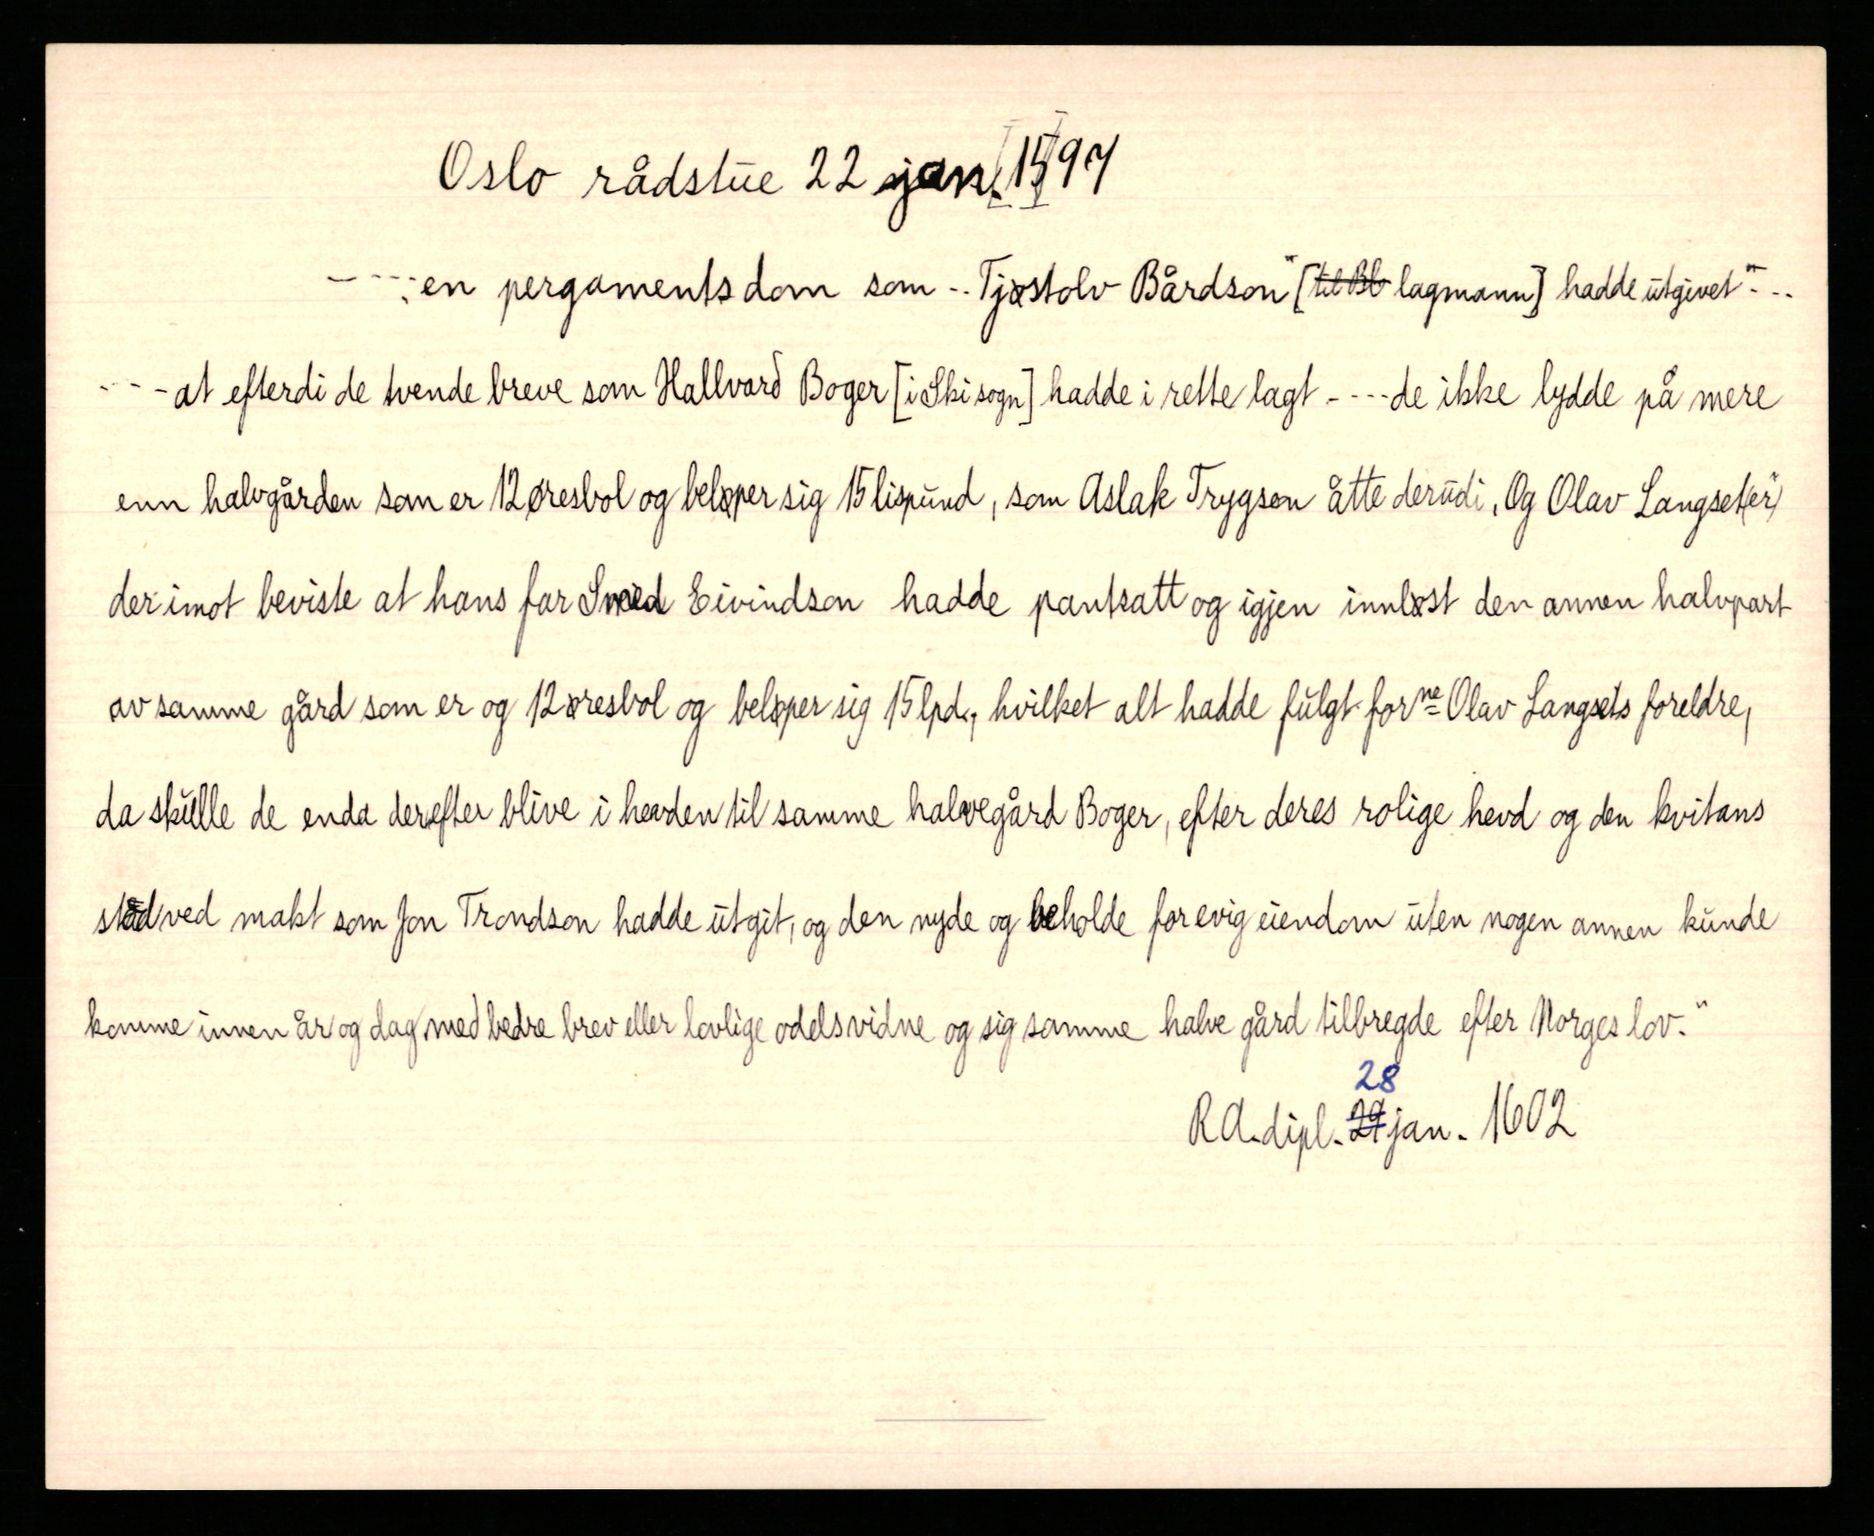 Oslo rådstue 22 jan. 1597
- - - : en pergamentsdom som - - Tjøstolv Bårdson" [til Bb lagmann] hadde utgivet" - - -
- - - - at efterdi de tvende breve som Hallvard Boger [i Ski sogn] hadde i rette lagt - - - - de ikke lydde på mere
enn halvgården som er 12 øresbol og beløper sig 15 lispund, som Aslak Trygson åtte derudi, Og Olav Langset(er)
derimot beviste at hans far Eivindson hadde pantsatt og igjen innløst den annen halvpart
av samme gård som er og 12 øresbol og beløper sig 15 lpd., hvilket alt hadde fulgt forne Olav Langsets foreldre,
da skulle de enda derefter blive i hevden til samme halvegård Boger, efter deres rolige hevd og den kvitans
stød ved makt som Jon Trondson hadde utgit, og den nyde og beholde for evig eiendom uten nogen annen kunde
komme innen år og dag med bedre brev eller lovlige odelsvidne og sig samme halve gård tilbregde efter Norges lov."
28
R A. dipl. 29 jan. 1602